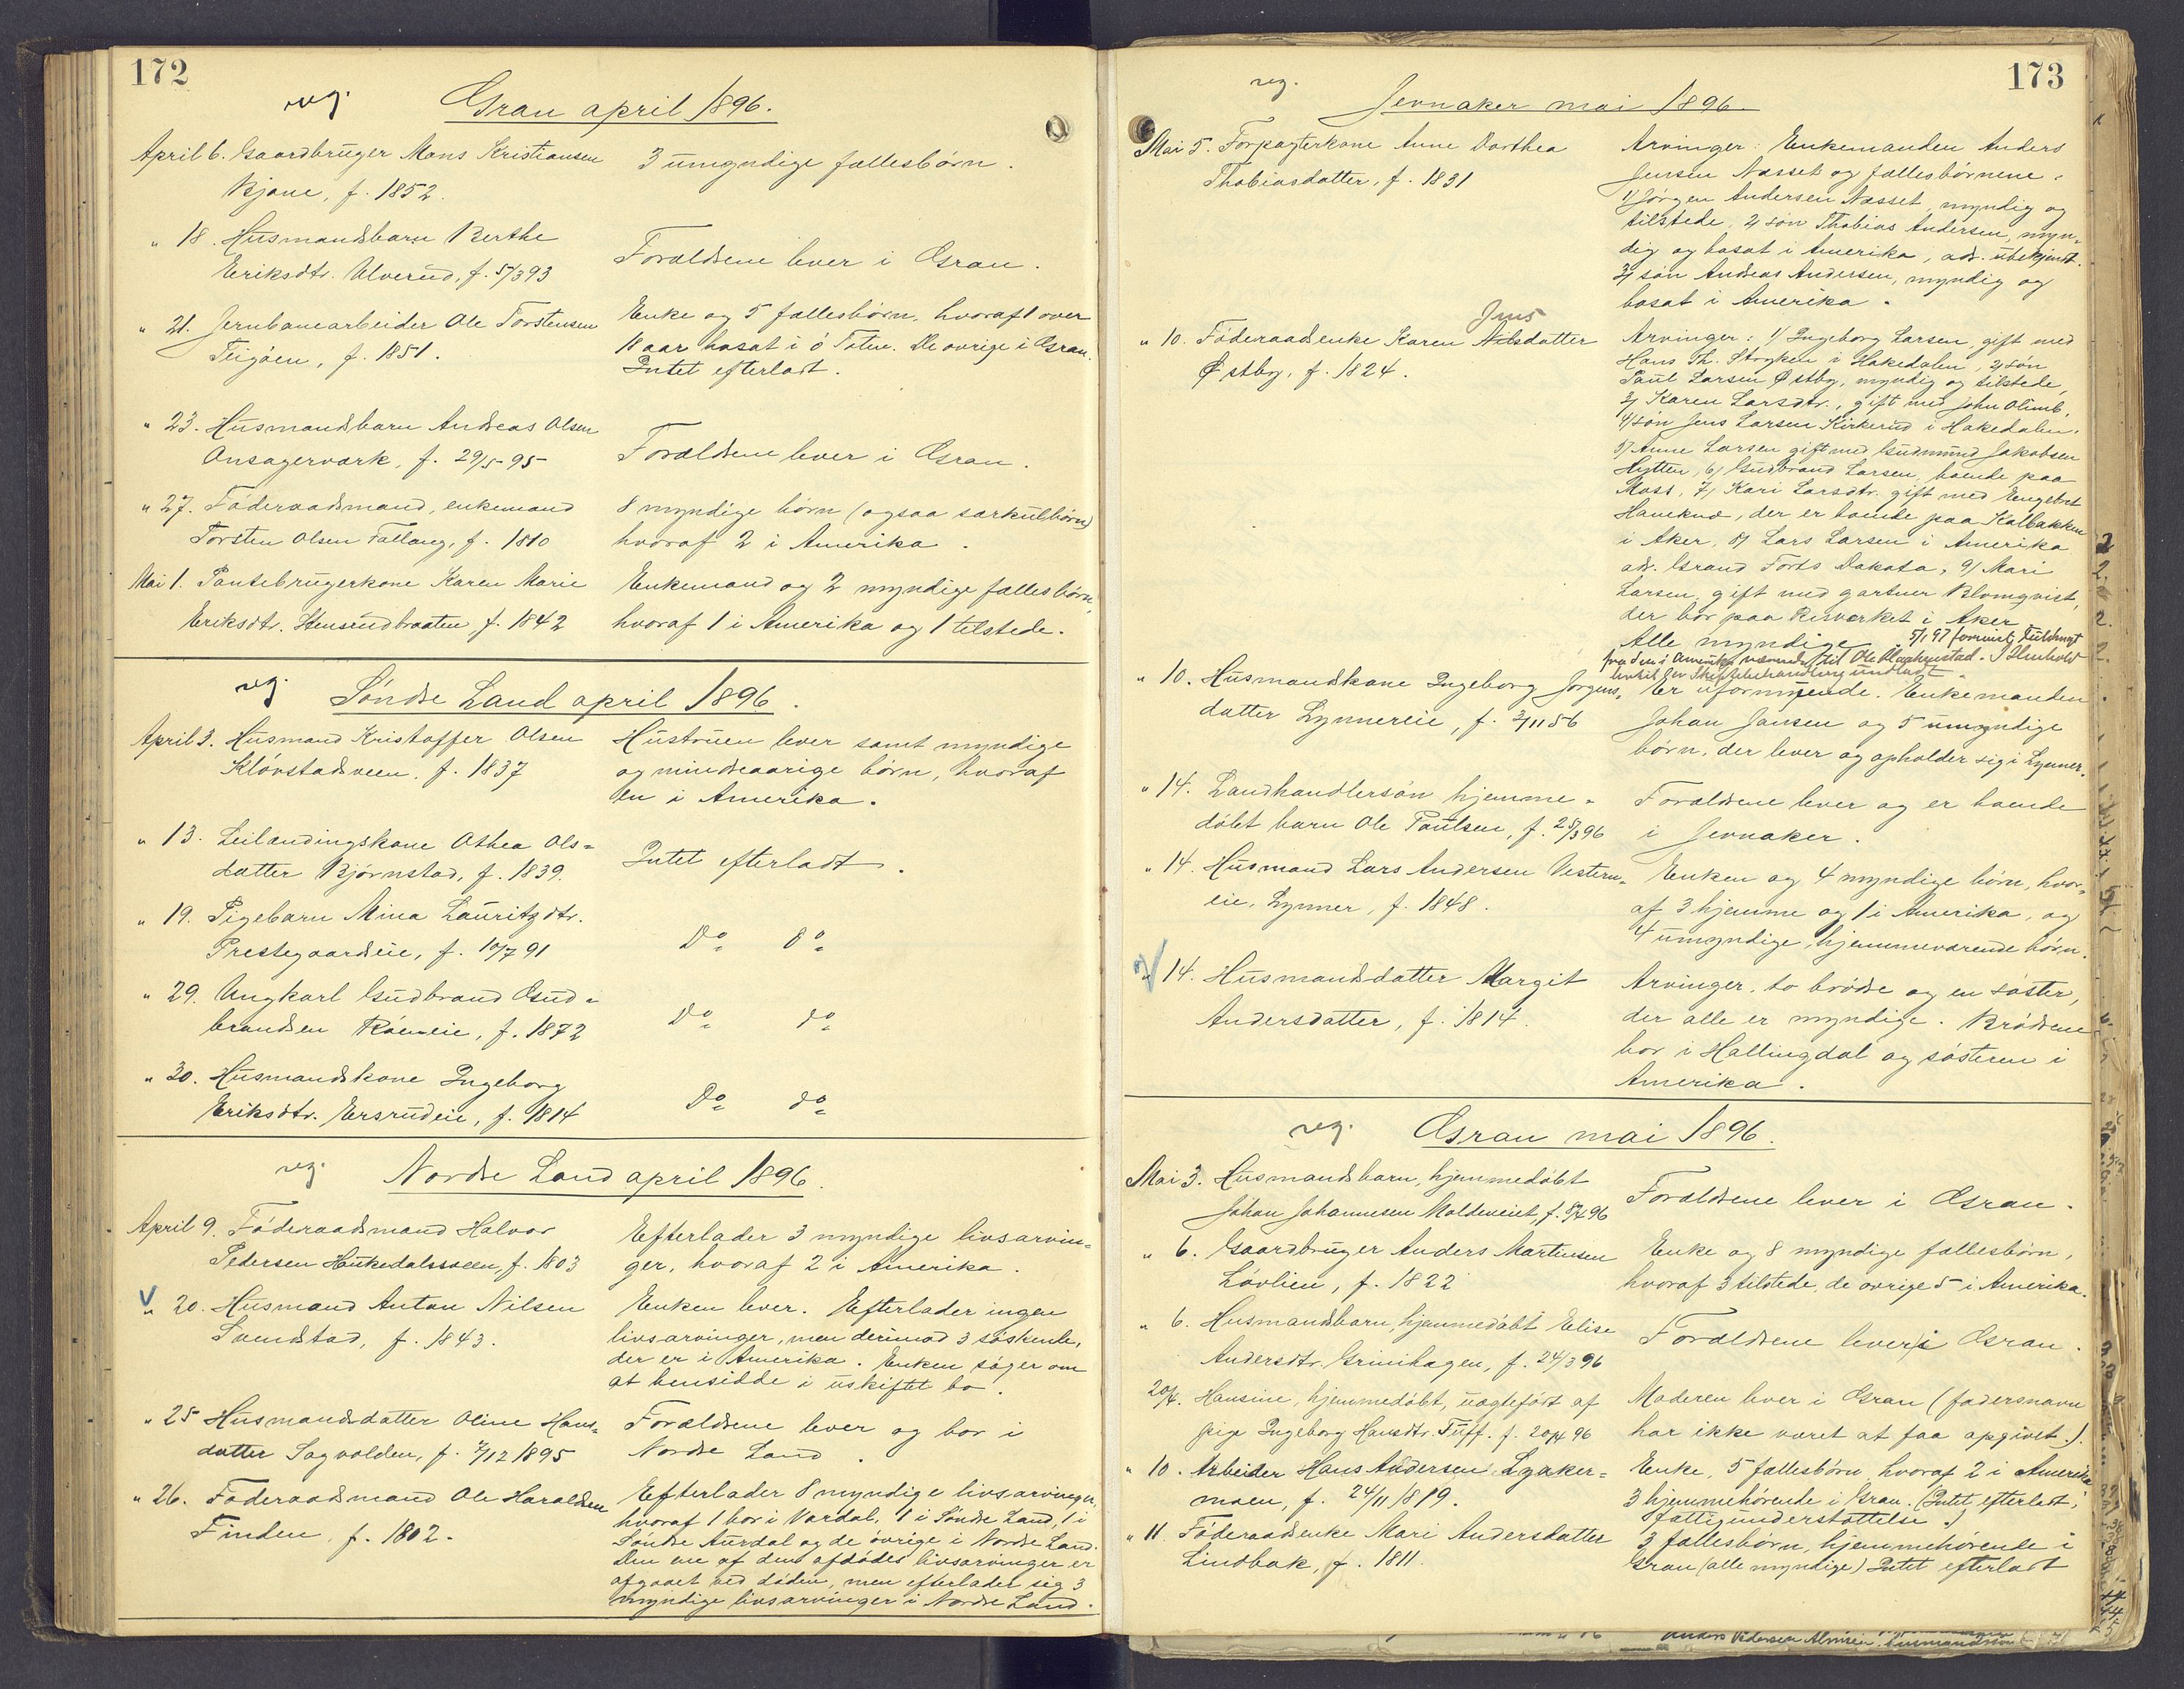 172
reg.
Gran april 1896.
April 6. Gaardbruger Mons Kristiansen
Bjone, f. 1852.
3 umyndige fællesbørn.
" 18. Husmandsbarn Berthe
Eriksdtr. Ulverud, f. 5/3 93
Forældrene lever i Gran.
" 21. Jernbanearbeider Ole Torstensen
Teigøen, f. 1851.
Enke og 5 fællesbørn, hvoraf 1 over
18 aar bosat i Ø Toten. De øvrige i Gran.
Intet efterladt.
" 23. Husmandsbarn Andreas Olsen
Onsagerværk, f. 29/5-95-
Forældrene lever i Gran.
" 27. Føderaadsmand, enkemand
Torsten Olsen Fallang, f. 1810
8 myndige børn (ogsaa særkulbørn)
hvoraf 2 i Amerika.
Mai 1. Pantebrugerkone Karen Marie
Eriksdtr. Hensrudbraaten f. 1842
Enkemand og 2 myndige fællesbørn,
hvoraf 1 i Amerika og 1 tilstede.
reg.
Søndre Land april 1896.
April 3. Husmand Kristoffer Olsen
Kløvstadsveen. f. 1837
Hustruen lever samt myndige
og mindreaarige børn, hvoraf
en i Amerika.
" 13. Leilændingskone Othea Ols=
datter Bjørnstad, f. 1839.
Intet efterladt.
" 19. Pigebarn Mina Lauritzdtr.
Prestegaardseie, f. 10/7 91
Do do
" 29. Ungkarl Gudbrand Gud=
brandsen Røeneie, f. 1872
Do do
" 30. Husmandskone Ingeborg
Eriksdtr. Ersrudeie, f. 1814
Do do
reg.
Nordre Land april 1896.
April 9. Føderaadsmand Halvor
Pedersen Haukedalssveen, f. 1803
Efterlader 3 myndige livsarvin=
ger, hvoraf 2 i Amerika.
" 20. Husmand Anton Nilsen
Svendstad, f. 1843.
Enken lever. Efterlader ingen
livsarvinger, men derimod 3 søskende,
der er i Amerika. Enken søger om
at hensidde i uskiftet bo.
" 25 Husmandsdatter Oline Hans=
datter Sagvolden, f. 7/12 1895
Forældrene lever og bor i
Nordre Land.
" 26. Føderaadsmand Ole Haraldsen
Finden, f. 1802.
Efterlader 8 myndige livsarvinger,
hvoraf 1 bor i Vardal, 1 i Søndre Land, 1 i
Søndre Aurdal og de øvrige i Nordre Land.
Den ene af den afdødes livsarvinger er
afgaaet ved døden, men efterlader sig 3
myndige livsarvinger i Nordre Land.
173
reg.
Jevnaker mai 1896.
Mai 5. Forpagterkone Anne Dorthea
Thobiasdatter, f. 1831
Arvinger: Enkemanden Anders
Jensen Næsset og fællesbørnene:
1/ Jørgen Andersen Næsset, myndig og
tilstede, 2/ søn Thobias Andersen, myn=
dig og bosat i Amerika, adr. ubekjendt.
3/ søn Andreas Andersen, myndig og
bosat i Amerika.
Jens
" 10. Føderaadsenke Karen Nilsdatter
Østby, f. 1824.
Arvinger: 1/ Ingeborg Larsen, gift med
Hans Th. Stryken i Hakedalen, 2/ søn
Paul Larsen Østby, myndig og tilstede,
3/ Karen Larsdtr., gift med John Olimb,
4/ søn Jens Larsen Kirkerud i Hakedalen.
5/ Anne Larsen gift med Gudmund Jakobsen
Hytten, 6/ Gudbrand Larsen, boende paa
Moss, 7/ Kari Larsdtr. gift med Engebret
Haneknæ, der er boende paa Kalbakken
i Aker, 8/ Lars Larsen i Amerika
adr. Grand Forts Dakota, 9/ Mari
Larsen, gift med gartner Blomqvist,
der bor paa Risværket i Aker
Alle myndige. 5/1 97 forevist fuldmagt
fra den i Amerika værende til Ole Klaekkenstad. I Henhold
hertil er Skiftebehandling undladt.
" 10. Husmandskone Ingeborg Jørgens=
datter Lynnereie, f. 3/11 56
Er uformuende. Enkemanden
Johan Jansen og 5 umyndige
børn, der lever og opholder sig i Lynner.
" 14. Landhandlersøn hjemme=
døbt barn Ole Paulsen, f. 25/3 96
Forældrene lever og er boende
i Jevnaker.
" 14. Husmand Lars Andersen Vestern=
eie, Lynner, f. 1848.
Enken og 4 myndige børn, hvor=
af 3 hjemme og 1 i Amerika, og
4 umyndige, hjemmeværende børn.
" 14. Husmandsdatter Margit
Andersdatter, f. 1814.
Arvinger: to brødre og en søster,
der alle er myndige. Brødrene
bor i Hallingdal og søsteren i
Amerika.
reg.
Gran mai 1896.
Mai 3. Husmandsbarn, hjemmedøbt
Johan Johannesen Moldeneiet, f. 8/4 96
Forældrene lever i Gran.
" 6. Gaardbruger Anders Martinsen
Løvlien, f. 1822
Enke og 8 myndige fællesbørn,
hvoraf 3 tilstede, de øvrige 5 i Amerika.
" 6. Husmandsbarn, hjemmedøbt Elise
Andersdtr. Grinihagen, f. 24/3 96
Forældrene lever i Gran.
20/4. Hansine, hjemmedøbt, uægtefødt af
pige Ingeborg Hansdtr. Tuff. f. 20/4 96
Moderen lever i Gran (fadersnavn
har ikke været at faa opgivet.)
" 10. Arbeider Hans Andersen Lyaker=
moen, f. 24/11 1819.
Enke, 5 fællesbørn hvoraf 2 i Amerika
3 hjemmehørende i Gran. (Intet efterladt,
fattigunderstøttelse.)
" 11. Føderaadsenke Mari Andersdatter
Lindbak, f. 1811.
3 fællesbørn, hjemmehørende i
Gran (alle myndige) Intet efterladt